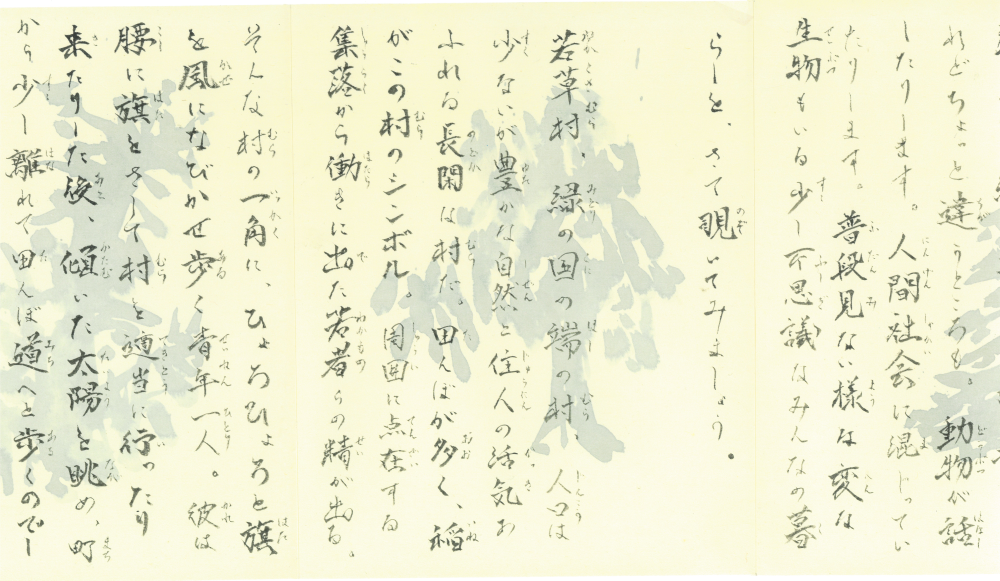 れどちょっと違うところも。動物が話
したりします。人間社会に混じってい
たりします。普段見ない様な変な
生物もいる少し不思議なみんなの暮
らしを、さて覗いてみましょう。
若草村、緑の国の端の村、人口は
少ないが豊かな自然と住人の活気あ
ふれる長閑な村だ。田んぼが多く、稲
がこの村のシンボル。周囲に点在する
集落から働きに出た若者らの精が出る。
そんな村の一角に、ひょろひょろと旗
を風になびかせ歩く青年一人。彼は
腰に旗をさして村を適当に行ったり
来たりした後、傾いた太陽を眺め、町
から少し離れて田んぼ道へと歩くのでし